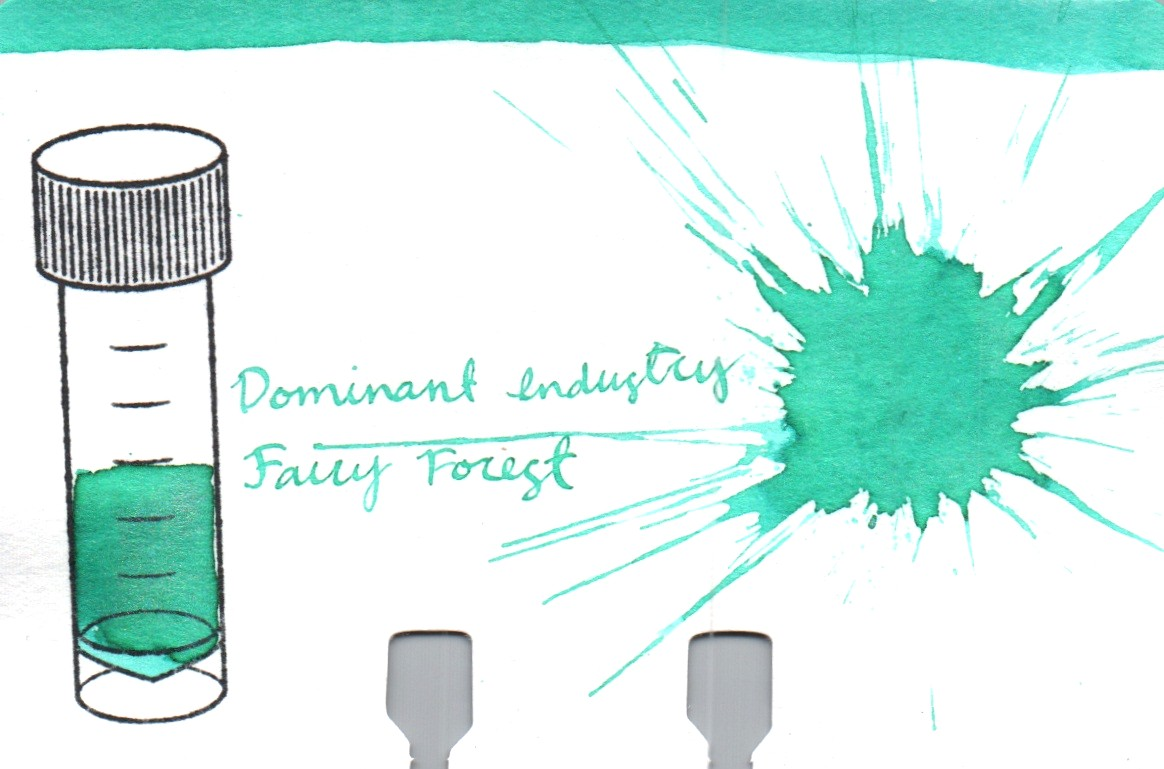 Dominant industry
Fairy Forest